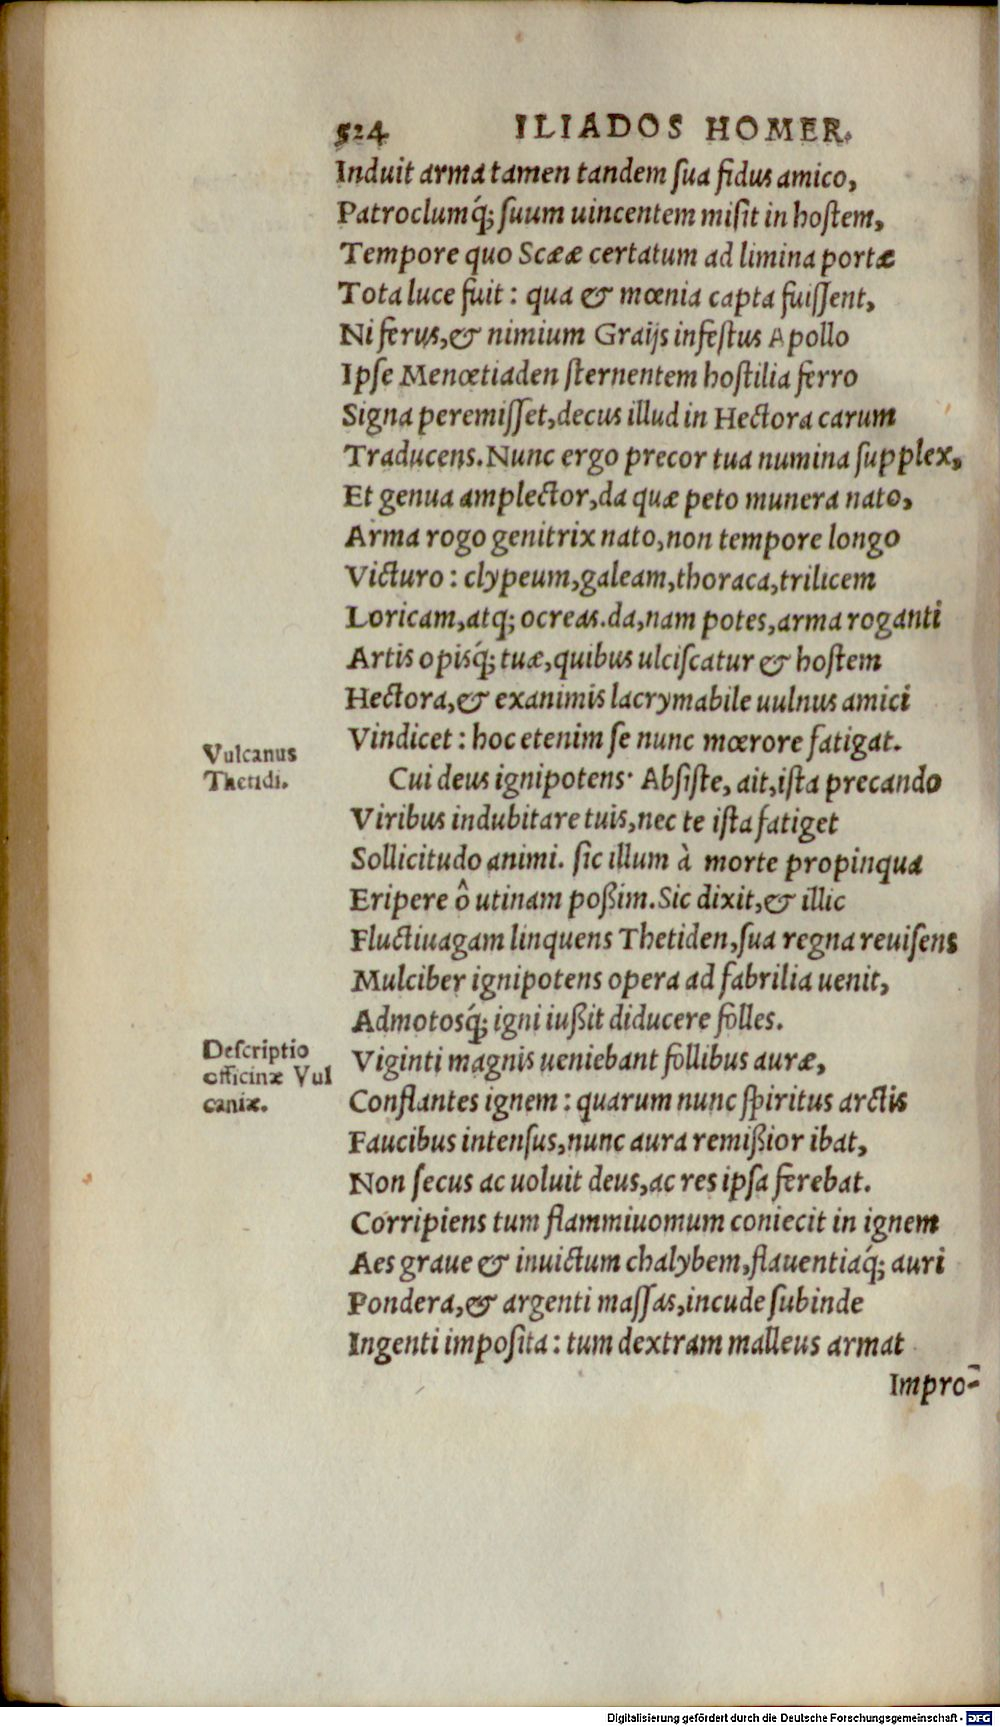 524 ILIADOS HOMER.
Induit arma tamen tandem ſua fidus amico,
Patroclumq́; ſuum uincentem miſit in hoſtem,
Tempore quo Scææ certatum ad limina portæ
Tota luce fuit : qua & mœnia capta fuiſſent,
Ni ferus,& nimium Graijs infeſtus Apollo
Ipſe Menœtiaden ſternentem hoſtilia ferro
Signa peremiſſet,decus illud in Hectora carum
Traducens.Nunc ergo precor tua numina ſupplex,
Et genua amplector,da quæ peto munera nato,
Arma rogo genitrix nato,non tempore longo
Victuro : clypeum,galeam,thoraca,trilicem
Loricam,atq; ocreas.da,nam potes,arma roganti
Artis opisq́; tuæ,quibus ulciſcatur & hoſtem
Hectora,& exanimis lacrymabile uulnus amici
Vindicet : hoc etenim ſe nunc mœrore fatigat.
Vulcanus
Thetidi.
Cui deus ignipotens· Abſiſte, ait,iſta precando
Viribus indubitare tuis,nec te iſta fatiget
Sollicitudo animi. ſic illum à morte propinqua
Eripere ô utinam poßim.Sic dixit,& illic
Fluctiuagam linquens Thetiden,ſua regna reuiſens
Mulciber ignipotens opera ad fabrilia uenit,
Admotosq́; igni iußit diducere folles.
Descriptio
officinæ Vul
caniæ.
Viginti magnis ueniebant follibus auræ,
Conflantes ignem : quarum nunc ſpiritus arctis
Faucibus intenſus,nunc aura remißior ibat,
Non ſecus ac uoluit deus,ac res ipſa ferebat.
Corripiens tum flammiuomum coniecit in ignem
Aes graue & inuictum chalybem,flauentiaq́; auri
Pondera,& argenti maſſas,incude ſubinde
Ingenti impoſita : tum dextram malleus armat
Impro-
Digitalisierung gefördert durch die Deutsche Forschungsgemeinschaft - DFG